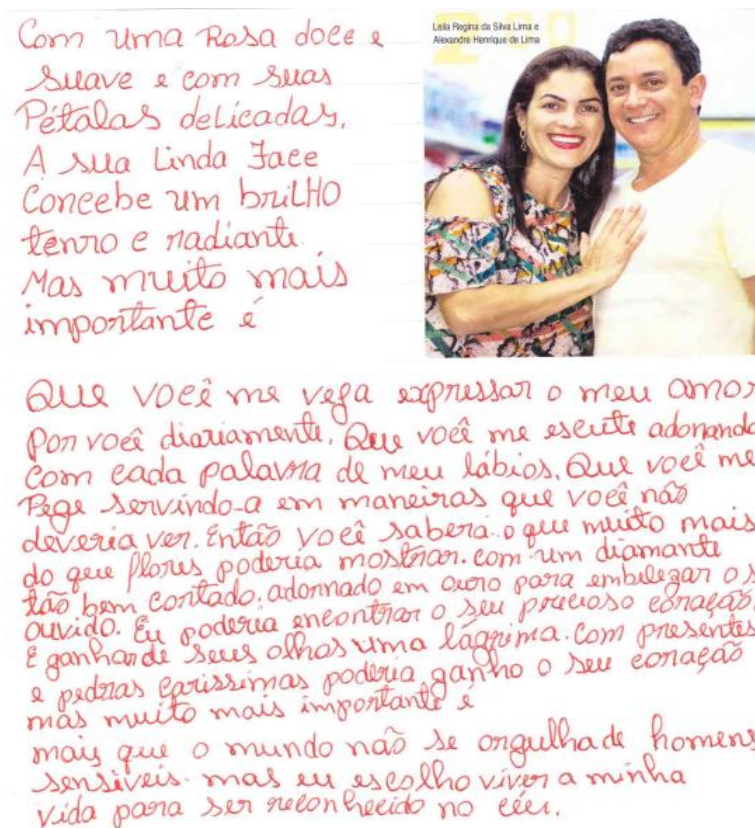 Com uma Rosa doce e
suave e com suas
Pétalas delicadas,
A sua Linda Face
Concebe um briLHO
tenro e radiante.
Mas muito mais
importante é
Leila Regina da Silva Lima e
Alexandre Henrique de Lima
Que você me veja expressar o meu amor
por você diariamente. Que você me escute adorando
com cada palavra de meu lábios. Que você me
Pege servindo-a em maneiras que você não
deveria ver. Então você saberá. o que muito mais
do que flores poderia mostrar. com um diamante
tão bem cortado, adornado em ouro para embelezar o s
ouvido. Eu poderia encontrar o seu precioso coração
E ganhar de seus olhos uma lágrima. Com presentes
e pedras caríssimas poderia ganho o seu coração
mas muito mais importante é
mais que o mundo não se orgulha de homens
sensíveis. mas eu escolho viver a minha
vida para ser reconhecido no céu.